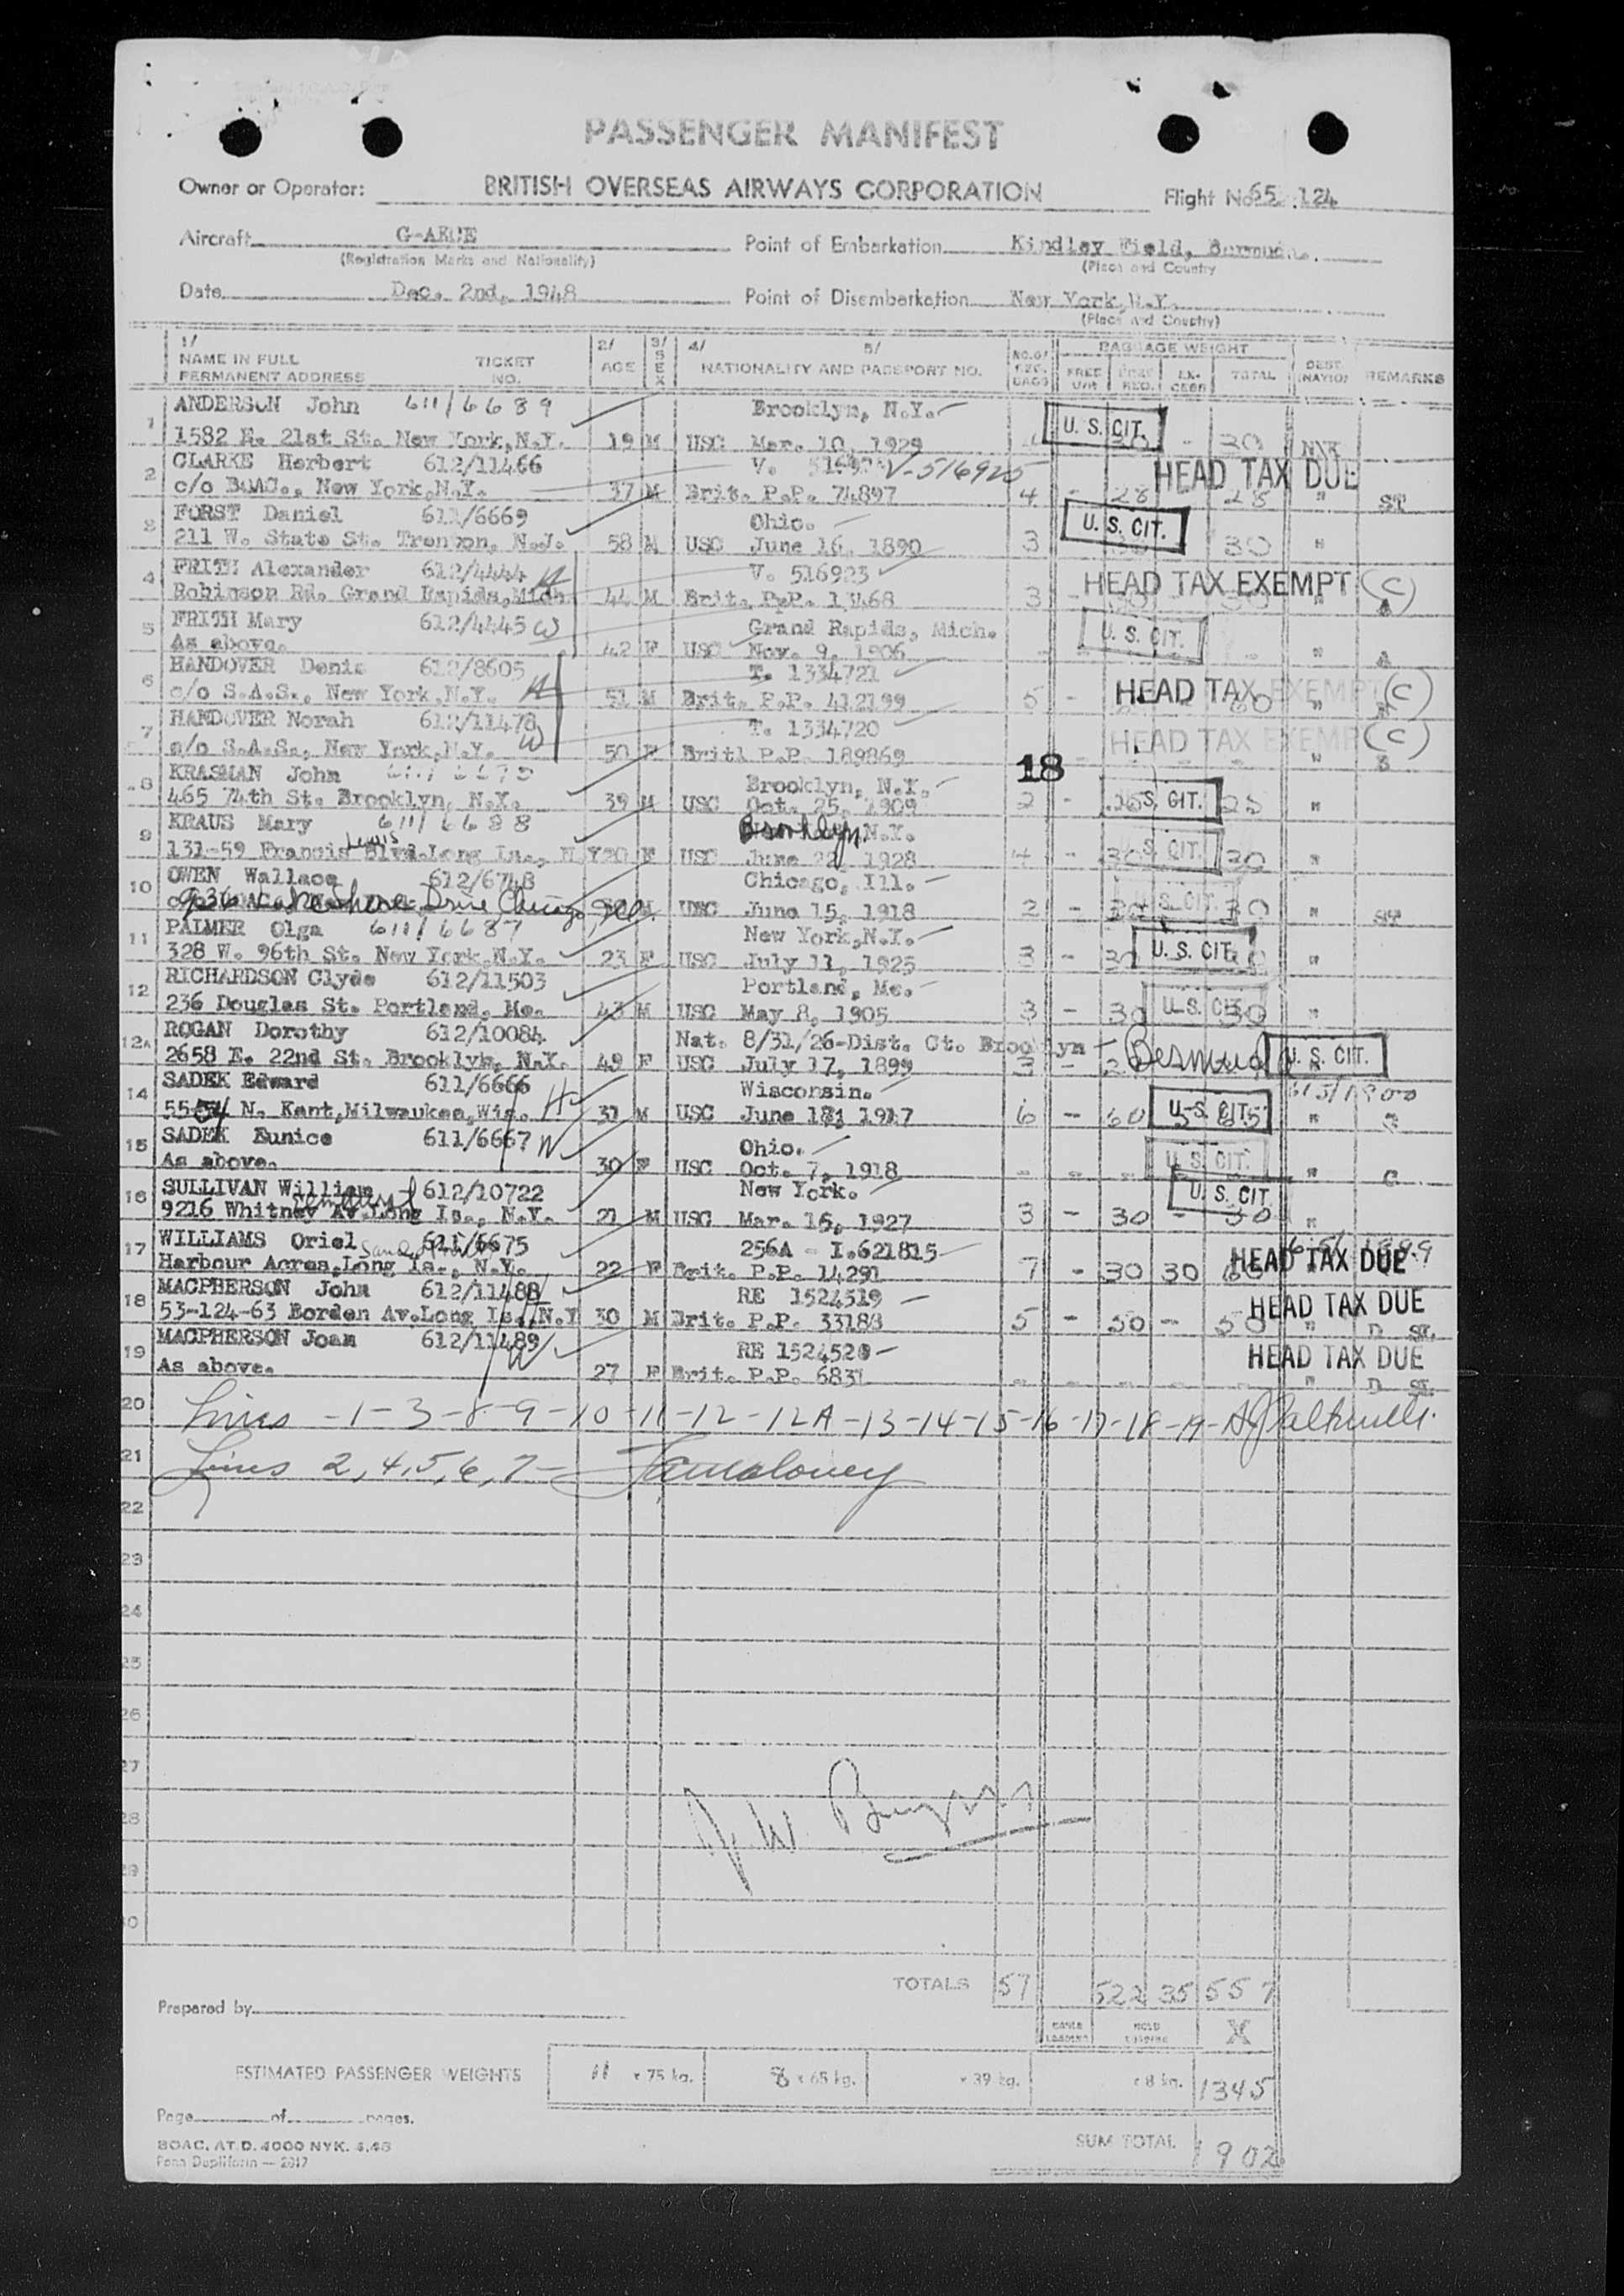 PASSENGER MANIFEST
Owner or Operator: BRITISH OVERSEAS AIRWAYS CORPORATION Flight No. 65 124
Aircraft Point of Embarkation Kindley Field,
(Registration Marks and Nationality) (Place and Country
Date Dec. 2nd, 1948 Point of Disembarkation New York, N.Y.
(Place and Country)
1/ 2/ 3/ 4/ 5/ BAGGAGE WEIGHT
NAME IN FULL TICKET AGE SEX NATIONALITY AND PASSPORT NO. TOTAL DEST INATION REMARKS
PERMANENT ADDRESS NO.
ANDERSON John 611/6689 Brooklyn, N.Y.
1 1582 E. 21st St. New York, N.Y. 19 M USC Mar. 10, 1929 U. S. CIT. - 30 NYK
CLARKE Herbert 612/11466 V. V-516925 HEAD TAX DUE
2 c/o BOAC., New York,N.Y. 37 M Brit. P.P. 74897 4 - 28 28 " ST
FORST Daniel 611/6669 Ohio.
3 211 W. State St. Trenton, N.J. 58 M USC June 16, 1890 3 U. S. CIT. 30 "
FRITH Alexander 612/4444 H V. 516923
4 Robinson Rd. Grand Rapids,Mich 44 M Brit. P.P. 3 HEAD TAX EXEMPT (C) " A
FRITH Mary 612/4445 W Grand Rapids, Mich.
5 As above. 42 F USC Nov. 9, 1906 U. S. CIT. " A
HANDOVER Denis 612/8605 T. 1334721
6 c/o S.A.S., New York,N.Y. H 51 M Brit. P.P. 412199 5 - HEAD TAX EXEMPT (C) 60 "
HANDOVER Norah 612/11478 W T. 1334720
7 c/o S.A.S., New York,N.Y. 50 F Britl P.P. 189869 HEAD TAX EXEMPT (C) " B
18
KRASMAN John Brooklyn, N.Y.
8 465 74th St. Brooklyn, N.Y. 39 M USC Oct. 25, 1909 2 - U. S. CIT. 25 "
KRAUS Mary 611/6688 Brooklyn, N.Y.
9 131-59 Francis Lewis Blvd. Long Is., N.Y 20 F USC June 22, 1928 4 - 30 U. S. CIT. 30 "
OWEN Wallace 612/6748 Chicago, Ill.
10 936 Lake Shore Drive Chicago, Ill. M USC June 15, 1918 2 - U. S. CIT. 30 " ST
PALMER Olga 611/6687 New York,N.Y.
11 328 W. 96th St. New York,N.Y. 23 F USC July 11, 1925 3 - 30 U. S. CIT. "
RICHARDSON Clyde 612/11503 Portland, Me.
12 236 Douglas St. Portland, Me. 43 M USC May 8, 1905 3 - 30 U. S. CIT. 30 "
ROGAN Dorothy 612/10084 Nat. 8/31/26-Dist. Ct. Brooklyn
12A 2658 E. 22nd St. Brooklyn, N.Y. 49 F USC July 17, 1899 3 - U. S. CIT.
SADEK Edward 611/6666 H Wisconsin.
14 N. Kent,Milwaukee,Wis. 31 M USC June 1917 6 - 60 U. S. CIT. "
SADEK Eunice 611/6667 W Ohio.
15 As above. 30 F USC Oct. 7, 1918 - - - U. S. CIT. " C
SULLIVAN William 612/10722 New York.
16 9216 Whitney Av.Long Is., N.Y. 21 M USC Mar. 16, 1927 3 - 30 - U. S. CIT. 30 "
WILLIAMS Oriel 611/6675 256A - I.621815
17 Harbour Acres,Long Is., N.Y. 22 F Brit. P.P. 14291 7 - 30 30 60 HEAD TAX DUE
MACPHERSON John 612/11488 H RE 1524519
18 53-124-63 Borden Av.Long Is.,N.Y 30 M Brit. P.P. 33188 5 - 50 - 50 HEAD TAX DUE " D ST.
MACPHERSON Joan 612/11489 W RE 1524520
19 As above. 27 F Brit. P.P. 6831 - - - - - HEAD TAX DUE " D ST.
20 Lines -1-3-8-9-10-11-12-12A-13-14-15-16-17-18-19-
21 Lines 2,4,5,6,7-
22
23
24
25
26
27
28
29
30
TOTALS 57 522 35 557
Prepared by
X
ESTIMATED PASSENGER WEIGHTS 11 x 75 kg. 8 x 65 kg. x 39 kg. x 8 kg. 1345
Page of pages.
BOAC. AT.D. 4000 NYK. 4.48 SUM TOTAL 1902
Penn Dupliform — 2817